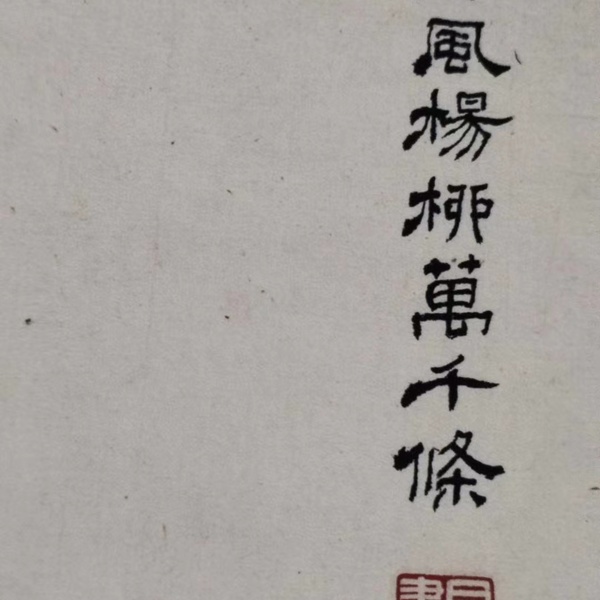 風楊柳萬千條